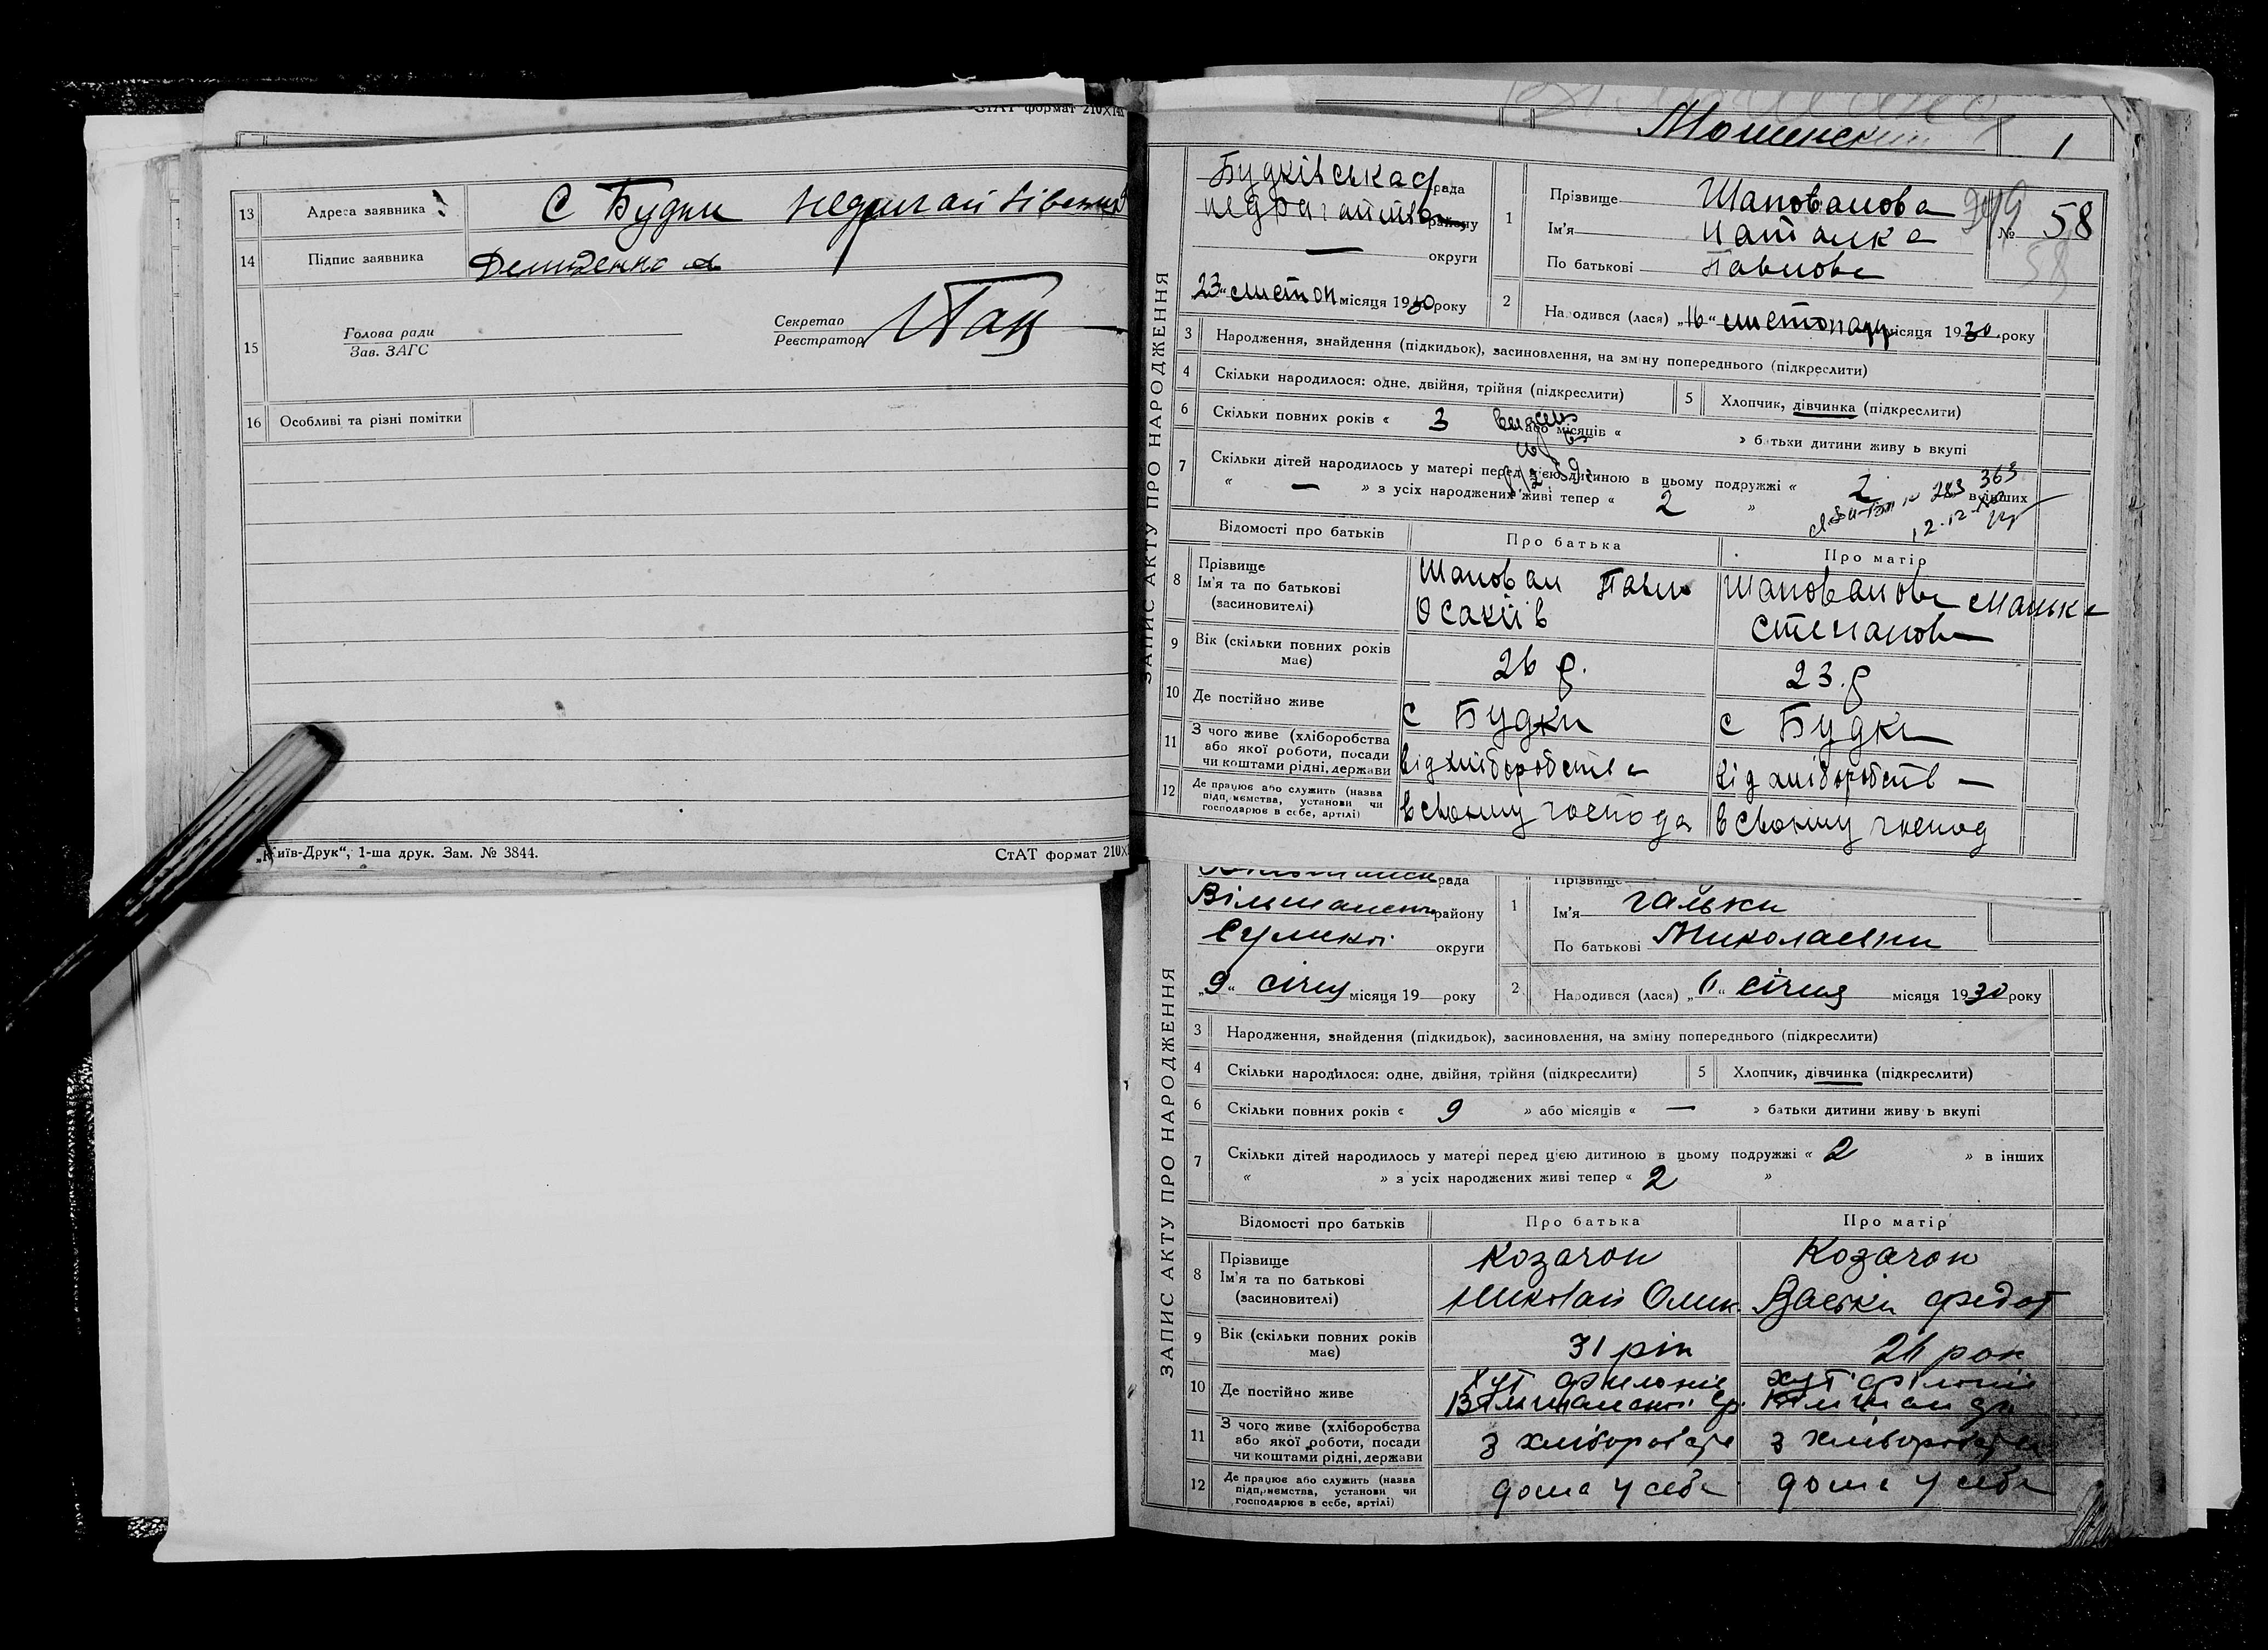 СтАТ формат 210×
13 Адреса заявника С Будки
14 Підпис заявника Демиденко
15 Голова ради
Зав. ЗАГС
Секретар
Реєстратор
16 Особливі та різні помітки
„Київ-Друк“, 1-ша друк. Зам. № 3844.
СтАТ формат 210×
1
ЗАПИС АКТУ ПРО НАРОДЖЕННЯ
Будківська с/рада
району
— округи
„23“ листоп місяця 1930 року
1 Прізвище Шаповалова
Ім'я Наталка
По батькові Павлова
№ 58
58
2 Народився (лася) „16“ листопаду місяця 1930 року
3 Народження, знайдення (підкидьок), засиновлення, на зміну попереднього (підкреслити)
4 Скільки народилося: одне, двійня, трійня (підкреслити)
5 Хлопчик, дівчинка (підкреслити)
6 Скільки повних років « 3 » або місяців « » батьки дитини живуть вкупі
7 Скільки дітей народилось у матері перед цією дитиною в цьому подружжі « 2 » в інших
« — » з усіх народжених живі тепер « 2 »
Відомості про батьків
Про батька
Про матір
8 Прізвище
Ім'я та по батькові
(засиновителі)
Шаповал Павло
Осакіїв
Шаповалова Манька
Степанова
9 Вік (скільки повних років
має)
26 р.
23.р
10 Де постійно живе
с Будки
с Будки
11 З чого живе (хліборобства
або якої роботи, посади
чи коштами рідні, держави
від хліборобства
від хліборобств —
12 Де працює або служить (назва
підприємства, установи чи
господарює в себе, артілі)
в своєму господа
в своєму господ
ЗАПИС АКТУ ПРО НАРОДЖЕННЯ
рада
району
Сумскої округи
„9“ січня місяця 19— року
1 Прізвище
Ім'я Гальки
По батькові Миколаєвни
2 Народився (лася) „6“ січня місяця 1930 року
3 Народження, знайдення (підкидьок), засиновлення, на зміну попереднього (підкреслити)
4 Скільки народилося: одне, двійня, трійня (підкреслити)
5 Хлопчик, дівчинка (підкреслити)
6 Скільки повних років « 9 » або місяців « — » батьки дитини живуть вкупі
7 Скільки дітей народилось у матері перед цією дитиною в цьому подружжі « 2 » в інших
« » з усіх народжених живі тепер « 2 »
Відомості про батьків
Про батька
Про матір
8 Прізвище
Ім'я та по батькові
(засиновителі)
Козачок
Николай
Козачок
Федот
9 Вік (скільки повних років
має)
31 рік
26 рок
10 Де постійно живе
хут
хут
11 З чого живе (хліборобства
або якої роботи, посади
чи коштами рідні, держави
з хліборобства
з хліборобства
12 Де працює або служить (назва
підприємства, установи чи
господарює в себе, артілі)
дома у себе
дома у себе